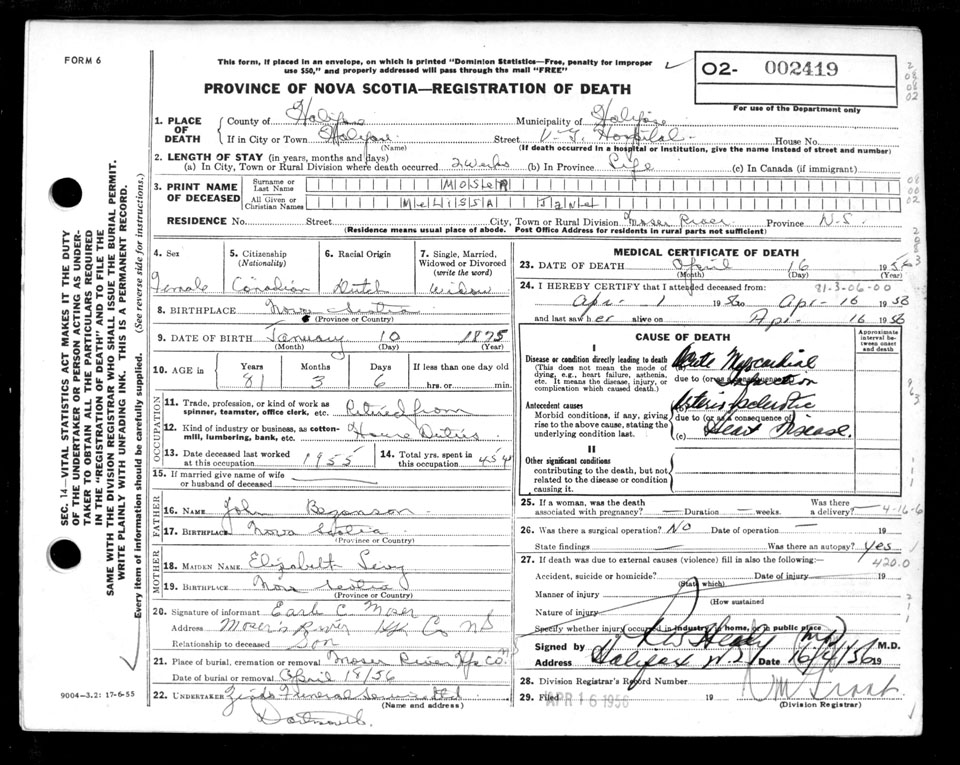 FORM 6
This form, if placed in an envelope, on which is printed "Dominion Statistics—Free, penalty for improper
use $50," and properly addressed will pass through the mail "FREE"
O2- 002419
For use of the Department only
PROVINCE OF NOVA SCOTIA—REGISTRATION OF DEATH
1. PLACE OF DEATH
County of Halifax Municipality of Halifax
If in City or Town Halifax Street V.G. Hospital House No.
(Name) (If death occurred in a hospital or institution, give the name instead of street and number)
2. LENGTH OF STAY (in years, months and days)
(a) In City, Town or Rural Division where death occurred 2 weeks (b) In Province Life (c) In Canada (if immigrant)
3. PRINT NAME OF DECEASED
Surname or Last Name MOSER
All Given or Christian Names MELISSA JANE
RESIDENCE No. Street City, Town or Rural Division Moser River Province N.S.
(Residence means usual place of abode. Post Office Address for residents in rural parts not sufficient)
4. Sex
Female
5. Citizenship (Nationality)
Canadian
6. Racial Origin
Dutch
7. Single, Married, Widowed or Divorced (write the word)
Widow
8. BIRTHPLACE Nova Scotia
(Province or Country)
9. DATE OF BIRTH January 10 1875
(Month) (Day) (Year)
10. AGE in Years Months Days If less than one day old
81 3 6 hrs. or min.
OCCUPATION
11. Trade, profession, or kind of work as spinner, teamster, office clerk, etc. Retired from
12. Kind of industry or business, as cotton-mill, lumbering, bank, etc. House Duties
13. Date deceased last worked at this occupation 1955
14. Total yrs. spent in this occupation 45 yr
15. If married give name of wife or husband of deceased
FATHER
16. NAME John Bezanson
17. BIRTHPLACE Nova Scotia
(Province or Country)
MOTHER
18. MAIDEN NAME Elizabeth Levy
19. BIRTHPLACE Nova Scotia
(Province or Country)
20. Signature of informant Earl C. Moser
Address Moser's River Hfx Co NS
Relationship to deceased Son
21. Place of burial, cremation or removal Moser River Hfx Co.
Date of burial or removal April 18/56
22. UNDERTAKER Zinks Funeral Service Ltd
(Name and address)
Dartmouth.
9004-3.2: 17-6-55
MEDICAL CERTIFICATE OF DEATH
23. DATE OF DEATH April 16 1956
(Month) (Day) (Year)
24. I HEREBY CERTIFY that I attended deceased from: 81-3-06-00
Apr. 1 1956 to Apr. 16 1956
and last saw her alive on Apr. 16 1956
CAUSE OF DEATH
Approximate interval between onset and death
I
Disease or condition directly leading to death
(This does not mean the mode of dying, e.g., heart failure, asthenia, etc. It means the disease, injury, or complication which caused death.)
(a) Acute Myocardial
due to (or as a consequence of) Infarction
Antecedent causes
Morbid conditions, if any, giving rise to the above cause, stating the underlying condition last.
(b) Arteriosclerotic
due to (or as a consequence of)
(c) Heart Disease.
II
Other significant conditions
contributing to the death, but not related to the disease or condition causing it.
25. If a woman, was the death associated with pregnancy? — Duration — weeks. Was there a delivery? — 4-16-6
26. Was there a surgical operation? No Date of operation — 19
State findings — Was there an autopsy? Yes
27. If death was due to external causes (violence) fill in also the following:— 420.0
Accident, suicide or homicide? Date of injury 19
(State which)
Manner of injury
(How sustained
Nature of injury
Specify whether injury occurred in industry, in home, or in public place
Signed by M.D.
Address Halifax N.S. Date 16/4/56 19
28. Division Registrar's Record Number
29. Filed APR 16 1956 19
(Division Registrar)
SEC. 14—VITAL STATISTICS ACT MAKES IT THE DUTY
OF THE UNDERTAKER OR PERSON ACTING AS UNDER-
TAKER TO OBTAIN ALL THE PARTICULARS REQUIRED
IN THE "REGISTRATION OF DEATH" AND TO FILE THE
SAME WITH THE DIVISION REGISTRAR WHO SHALL ISSUE THE BURIAL PERMIT.
WRITE PLAINLY WITH UNFADING INK. THIS IS A PERMANENT RECORD.
Every item of information should be carefully supplied. (See reverse side for instructions.)